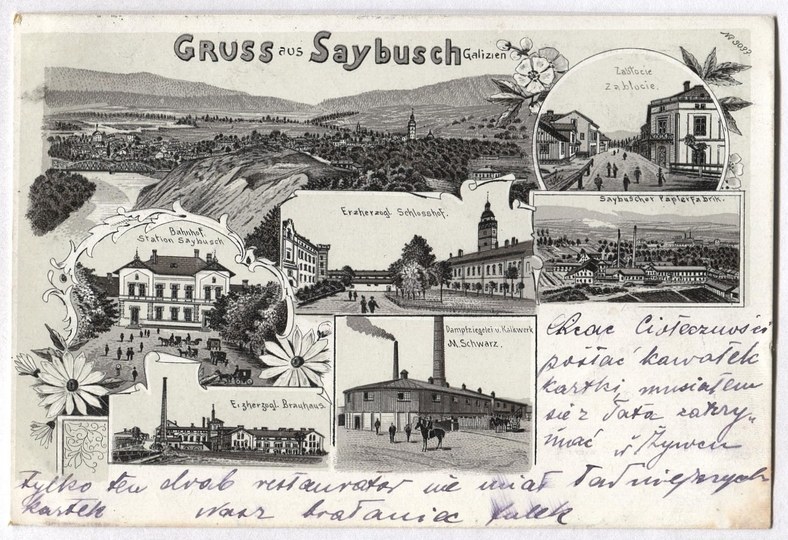 GRUSS aus Saybusch Galizien
Nº 9097
Zabłocie
Zablocie.
Saybuscher Papierfabrik.
Erzherzogl. Schlosshof.
Bahnhof.
Station Saybusch
Dampfziegelei u. Kalkwerk
M. Schwarz.
Erzherzogl. Brauhaus.
Chcąc Ciotczności
posłać kawałek
kartki musiałem
się z Tatą zatrzy„
mać w Żywcu
tylko ten drab restaurator nie miał ładniejszych
kartek Wasz bratanec